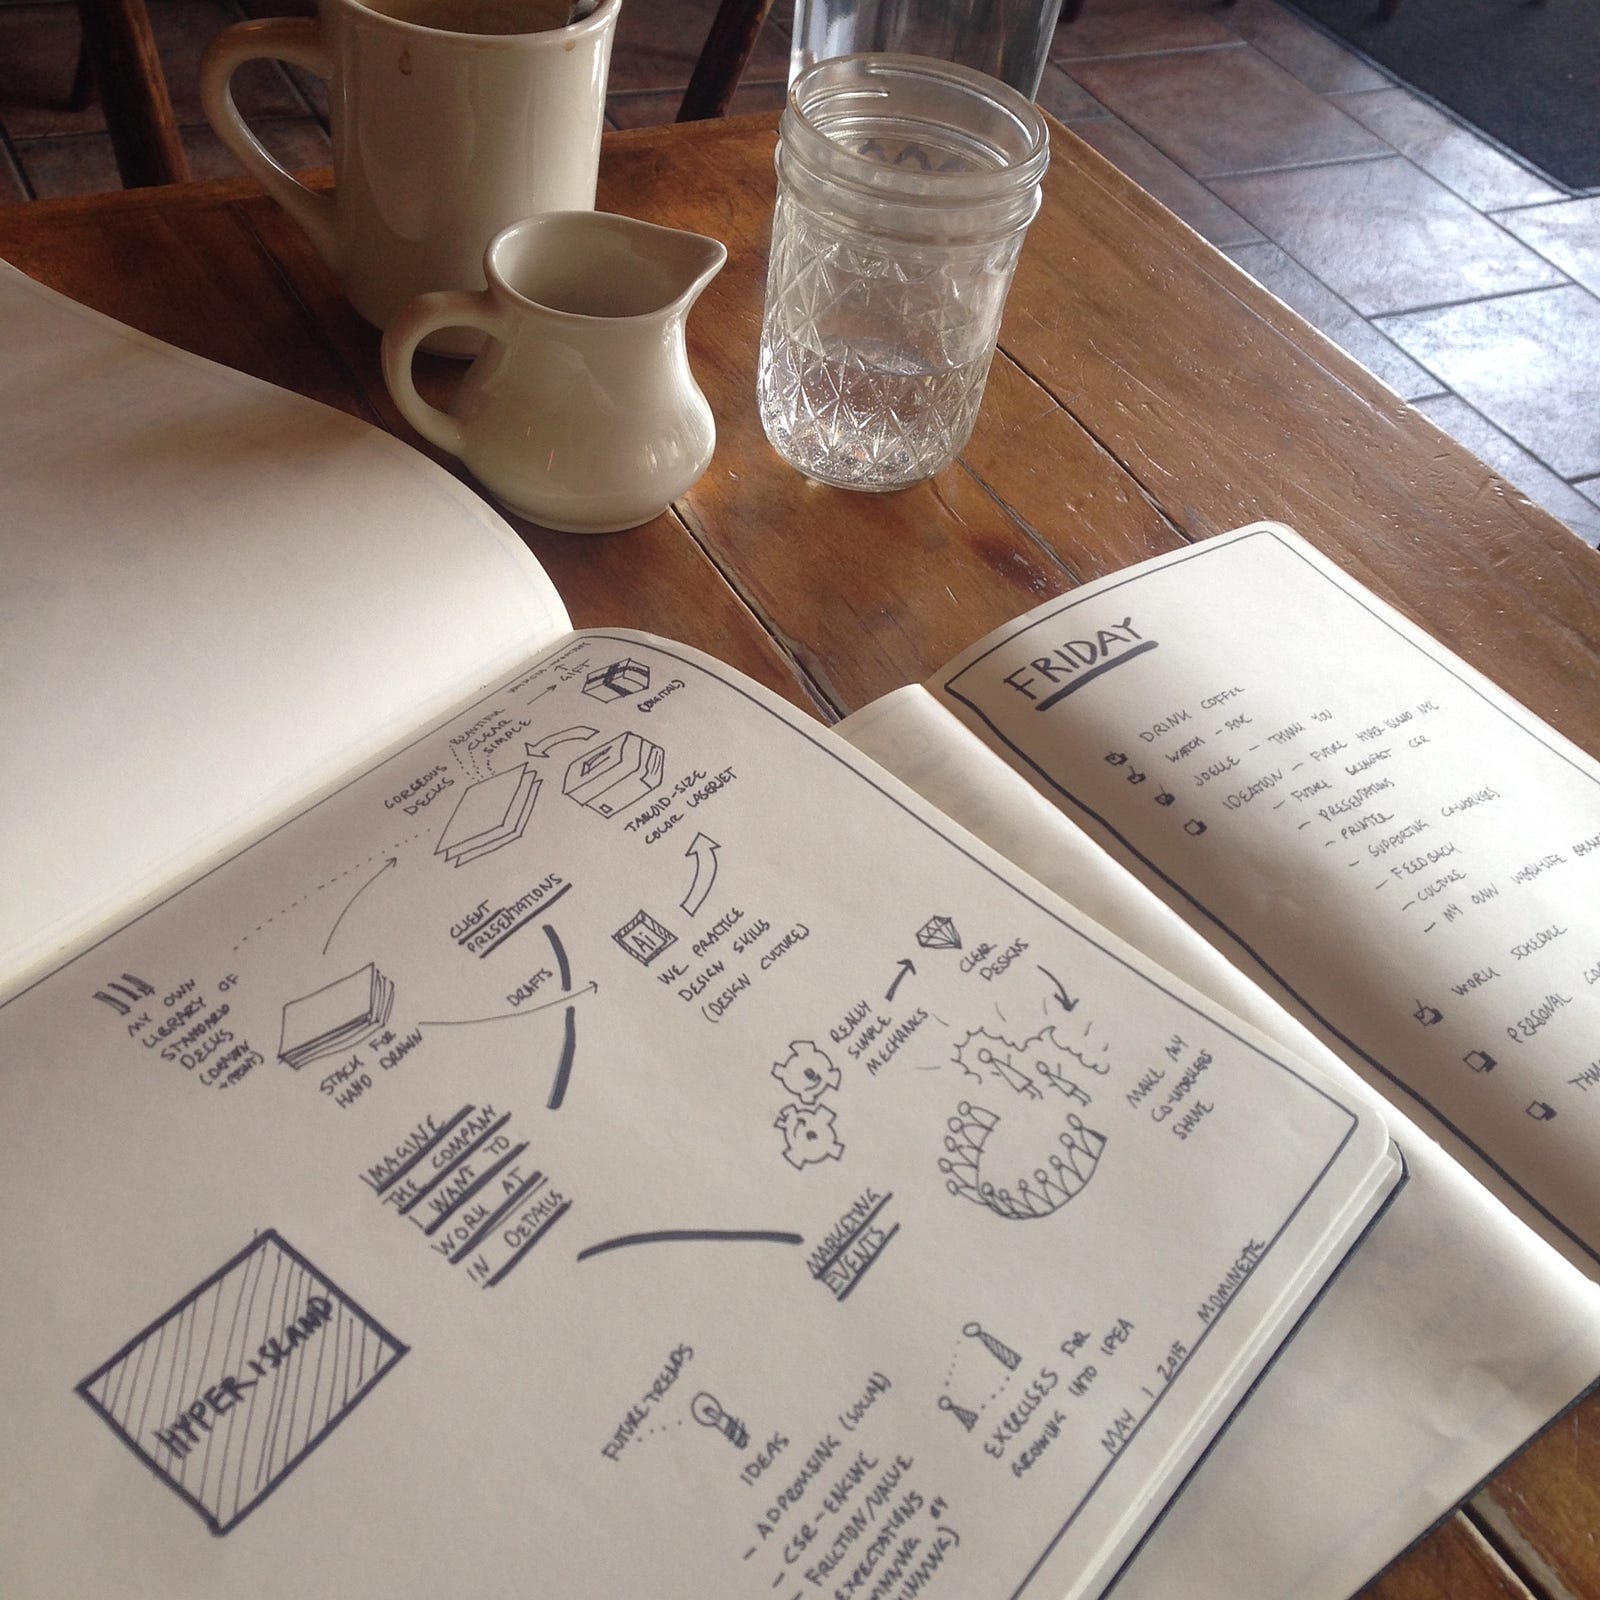 GIFT
(DIGITAL)
BEAUTIFUL
CLEAR
SIMPLE
GORGEOUS
DECKS
TABLOID-SIZE
COLOR LASERJET
CLIENT
PRESENTATIONS
DRAFTS
Ai
WE PRACTICE
DESIGN SKILLS
(DESIGN CULTURE)
MY OWN
LIBRARY OF
STANDARD
DECKS
(DRAWN
STACK FOR
HAND DRAWN
IMAGINE
THE COMPANY
I WANT TO
WORK AT
IN DETAILS
HYPER ISLAND
REALLY
SIMPLE
MECHANICS
CLEAR
DESIGNS
MAKE MY
CO-WORKERS
SHINE
MARKETING
EVENTS
FUTURE-TRENDS
IDEAS
- APPROVISING (SOCIAL)
- CSR-ENGINE
- FRICTION/VALUE
EXPECTATIONS
EXERCISES FOR
GROWING INTO IDEA
MAY 1 2015 MOMINETTE
FRIDAY
DRINK COFFEE
WATCH - SVK
JOELLE - THANK YOU
IDEATION - FUTURE HYPER ISLAND NYC
- FUTURE BREAKFAST CSR
- PRESENTATIONS
- PRINTER
- SUPPORTING CO-WORKERS
- FEEDBACK
- CULTURE
- MY OWN WORK-LIFE
WORK SCHEDULE
PERSONAL